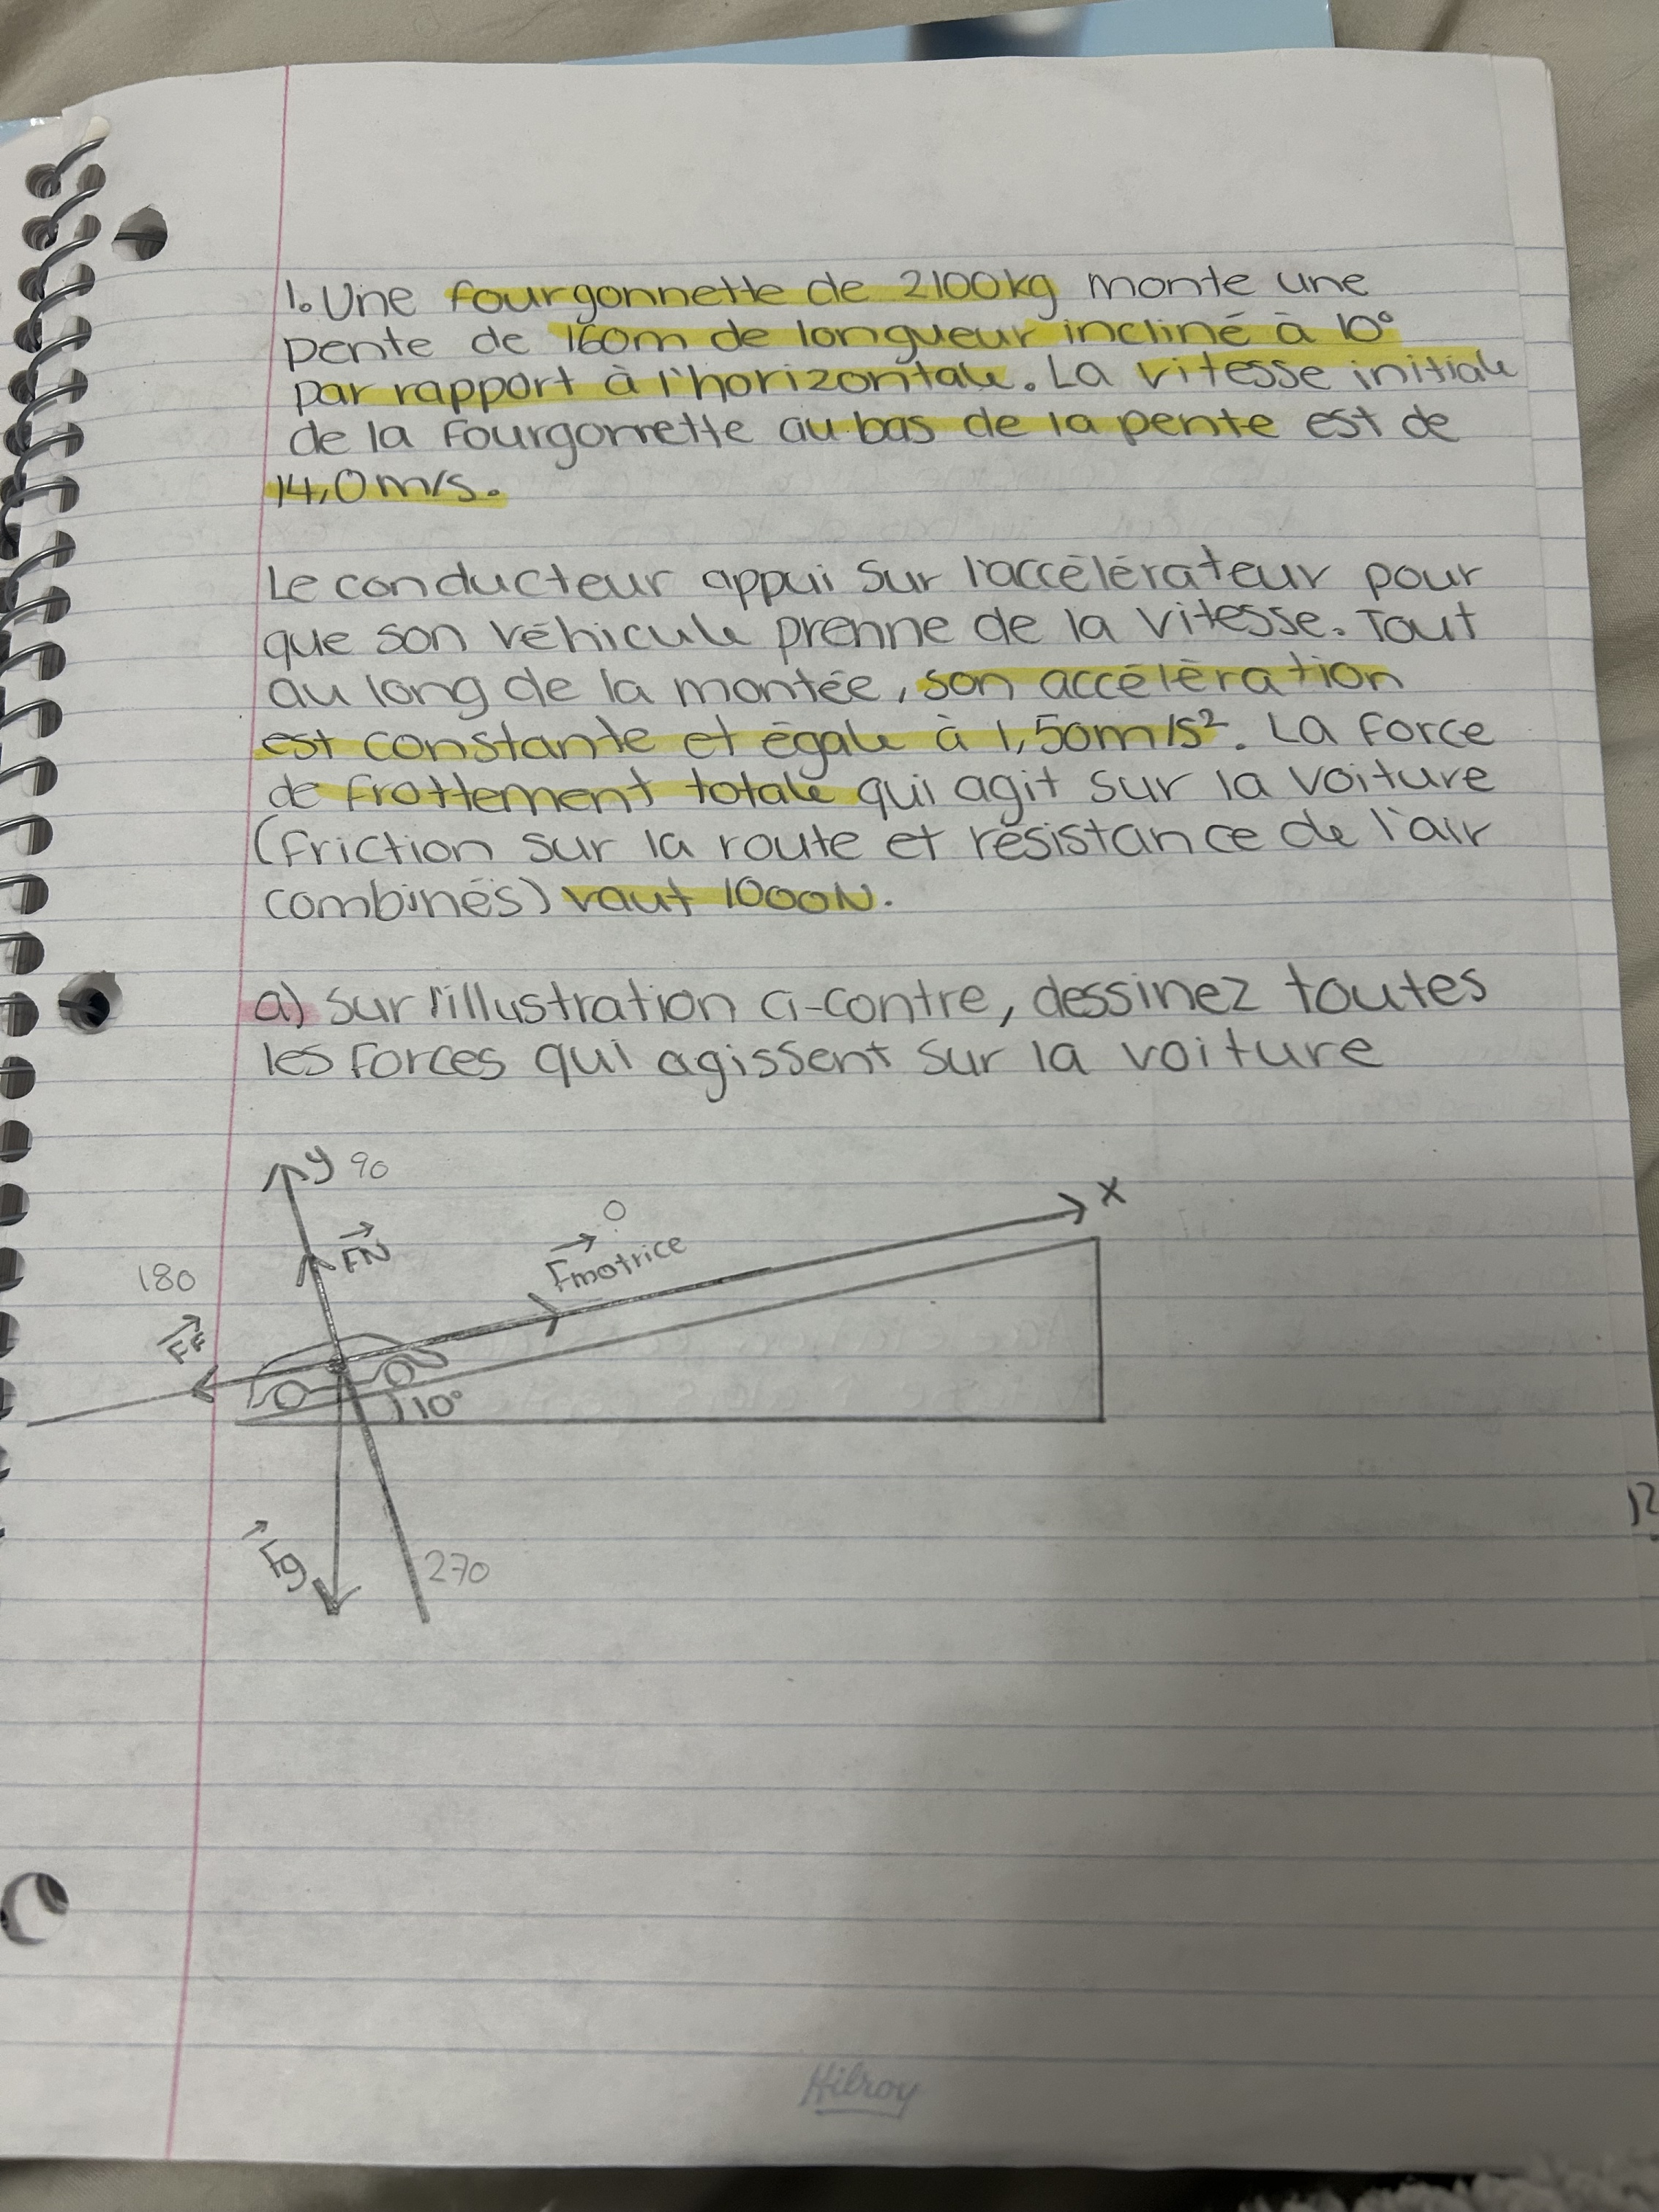 1. Une fourgonnette de 2100kg monte une
pente de 160m de longueur incliné à 10°
par rapport à l'horizontale. La vitesse initiale
de la fourgonnette au bas de la pente est de
14,0m/s.
Le conducteur appui sur l'accélérateur pour
que son véhicule prenne de la vitesse. Tout
au long de la montée, son accélération
est constante et égale à 1,50m/s².  La force
de frottement totale qui agit sur la voiture
(friction sur la route et résistance de l'air
combinés) vaut 1000N.
a) Sur l'illustration ci-contre, dessinez toutes
les forces qui agissent sur la voiture
y 90
x
0
FN
Fmotrice
180
FF
10°
Fg
270
Hilroy